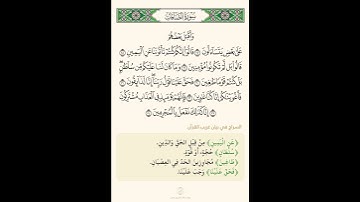 سُورَةُ الصَّافَّاتِ
وَأَقْبَلَ بَعْضُهُمْ
عَلَىٰ بَعْضٍ يَتَسَآءَلُونَ ۝ قَالُوٓا۟ إِنَّكُمْ كُنتُمْ تَأْتُونَنَا عَنِ ٱلْيَمِينِ ۝
قَالُوا۟ بَل لَّمْ تَكُونُوا۟ مُؤْمِنِينَ ۝ وَمَا كَانَ لَنَا عَلَيْكُم مِّن سُلْطَٰنٍۭ
بَلْ كُنتُمْ قَوْمًا طَٰغِينَ ۝ فَحَقَّ عَلَيْنَا قَوْلُ رَبِّنَآ إِنَّا لَذَآئِقُونَ ۝
فَأَغْوَيْنَٰكُمْ إِنَّا كُنَّا غَٰوِينَ ۝ فَإِنَّهُمْ يَوْمَئِذٍ فِى ٱلْعَذَابِ مُشْتَرِكُونَ
۝ إِنَّا كَذَٰلِكَ نَفْعَلُ بِٱلْمُجْرِمِينَ ۝
السراج في بيان غريب القرآن
﴿عَنِ الْيَمِينِ﴾ مِنْ قِبَلِ الْحَقِّ وَالدِّينِ.
﴿سُلْطَانٍ﴾ حُجَّةٍ، أَوْ قُوَّةٍ.
﴿طَاغِينَ﴾ مُجَاوِزِينَ الْحَدَّ فِي الْعِصْيَانِ.
﴿فَحَقَّ عَلَيْنَا﴾ وَجَبَ عَلَيْنَا.